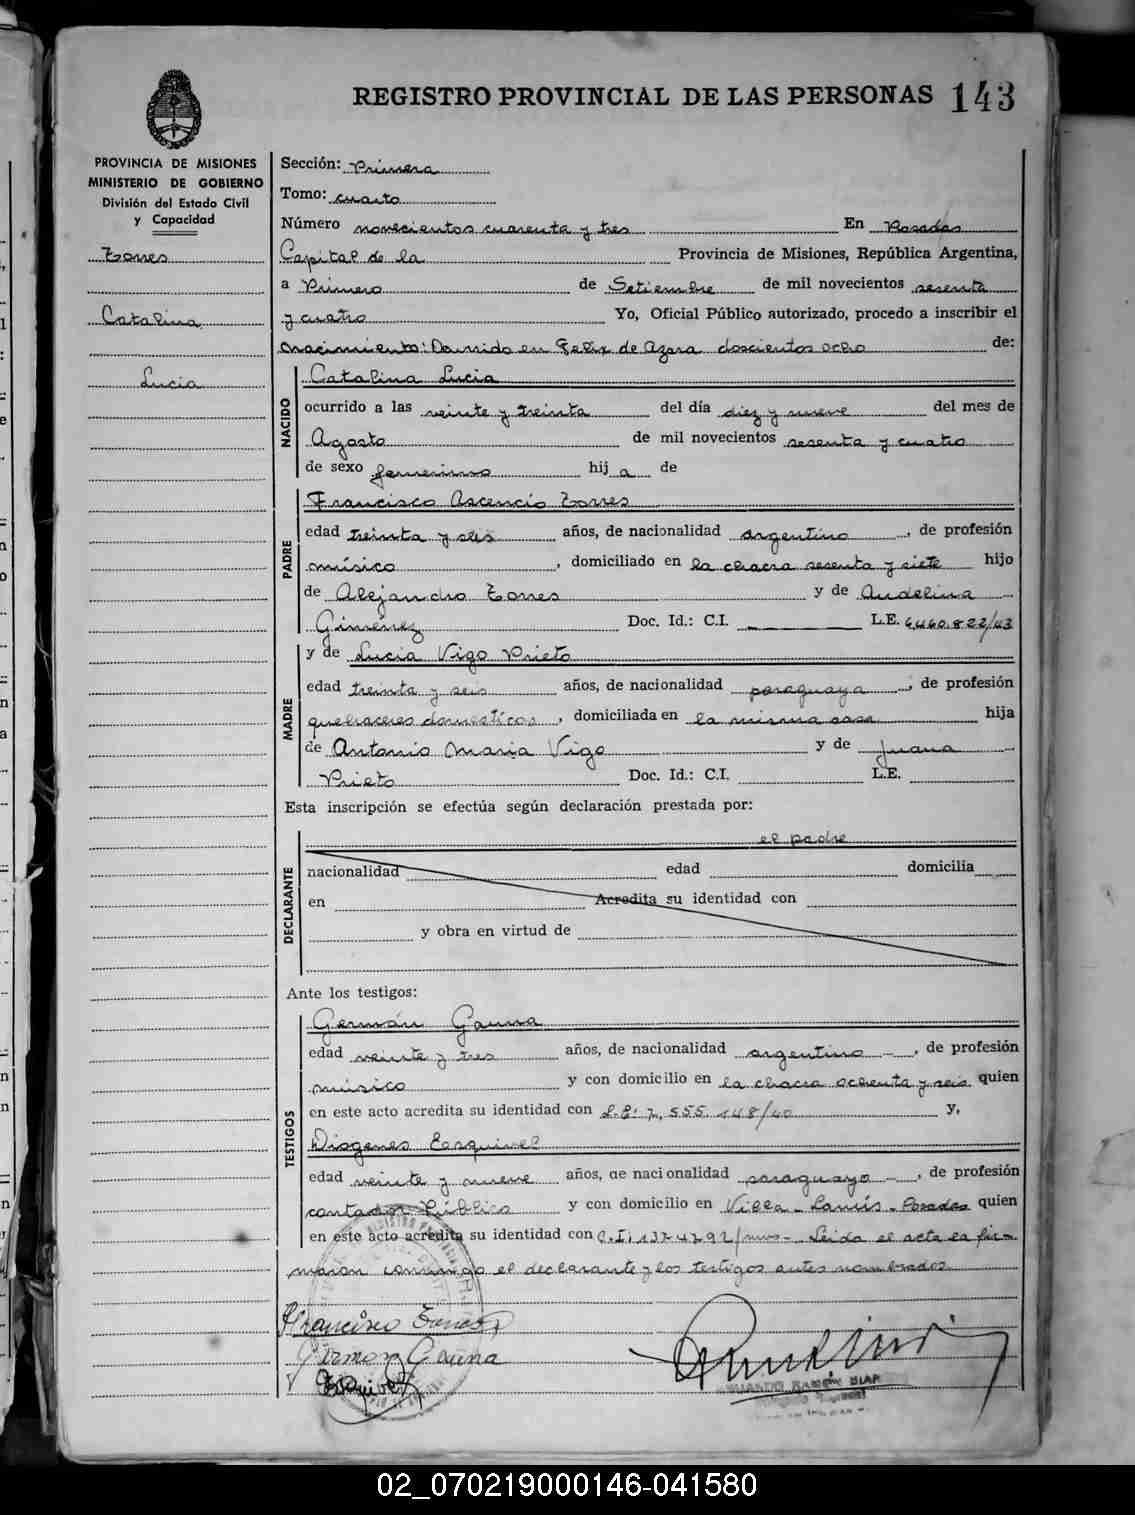 REGISTRO PROVINCIAL DE LAS PERSONAS 143
PROVINCIA DE MISIONES
MINISTERIO DE GOBIERNO
División del Estado Civil
y Capacidad
Torres
Catalina
Lucia
Sección: Primera
Tomo: cuarto
Número novecientos cuarenta y tres En Posadas
Capital de la Provincia de Misiones, República Argentina,
a Primero de Setiembre de mil novecientos sesenta
y cuatro Yo, Oficial Público autorizado, procedo a inscribir el
nacimiento: Ocurrido en Felix de Azara doscientos ocho de:
NACIDO
Catalina Lucia
ocurrido a las veinte y treinta del día diez y nueve del mes de
Agosto de mil novecientos sesenta y cuatro
de sexo femenino hij a de
PADRE
Francisco Ascencio Torres
edad treinta y seis años, de nacionalidad argentino, de profesión
músico, domiciliado en la chacra sesenta y siete hijo
de Alejandro Torres y de Audelina
Giménez Doc. Id.: C.I. L.E. 6460.822/43
MADRE
y de Lucia Vigo Prieto
edad treinta y seis años, de nacionalidad paraguaya, de profesión
quehaceres domesticos, domiciliada en la misma casa hija
de Antonio Maria Vigo y de Juana
Prieto Doc. Id.: C.I. L.E.
Esta inscripción se efectúa según declaración prestada por:
DECLARANTE
el padre
nacionalidad edad domicilia
en Acredita su identidad con
y obra en virtud de
Ante los testigos:
TESTIGOS
Germán Gauna
edad veinte y tres años, de nacionalidad argentino -, de profesión
músico y con domicilio en la chacra ochenta y seis quien
en este acto acredita su identidad con L.E: 7,555.148/40 y,
Diogenes Esquivel
edad veinte y nueve años, de nacionalidad paraguayo -, de profesión
contador Público y con domicilio en Villa - Lanús - Posadas quien
en este acto acredita su identidad con C.I, 1324792/mns - Leida el acta la fir=
maron conmigo el declarante y los testigos antes nombrados
Francisco Torres
German Gauna
Esquivel
RAMÓN
02_070219000146-041580